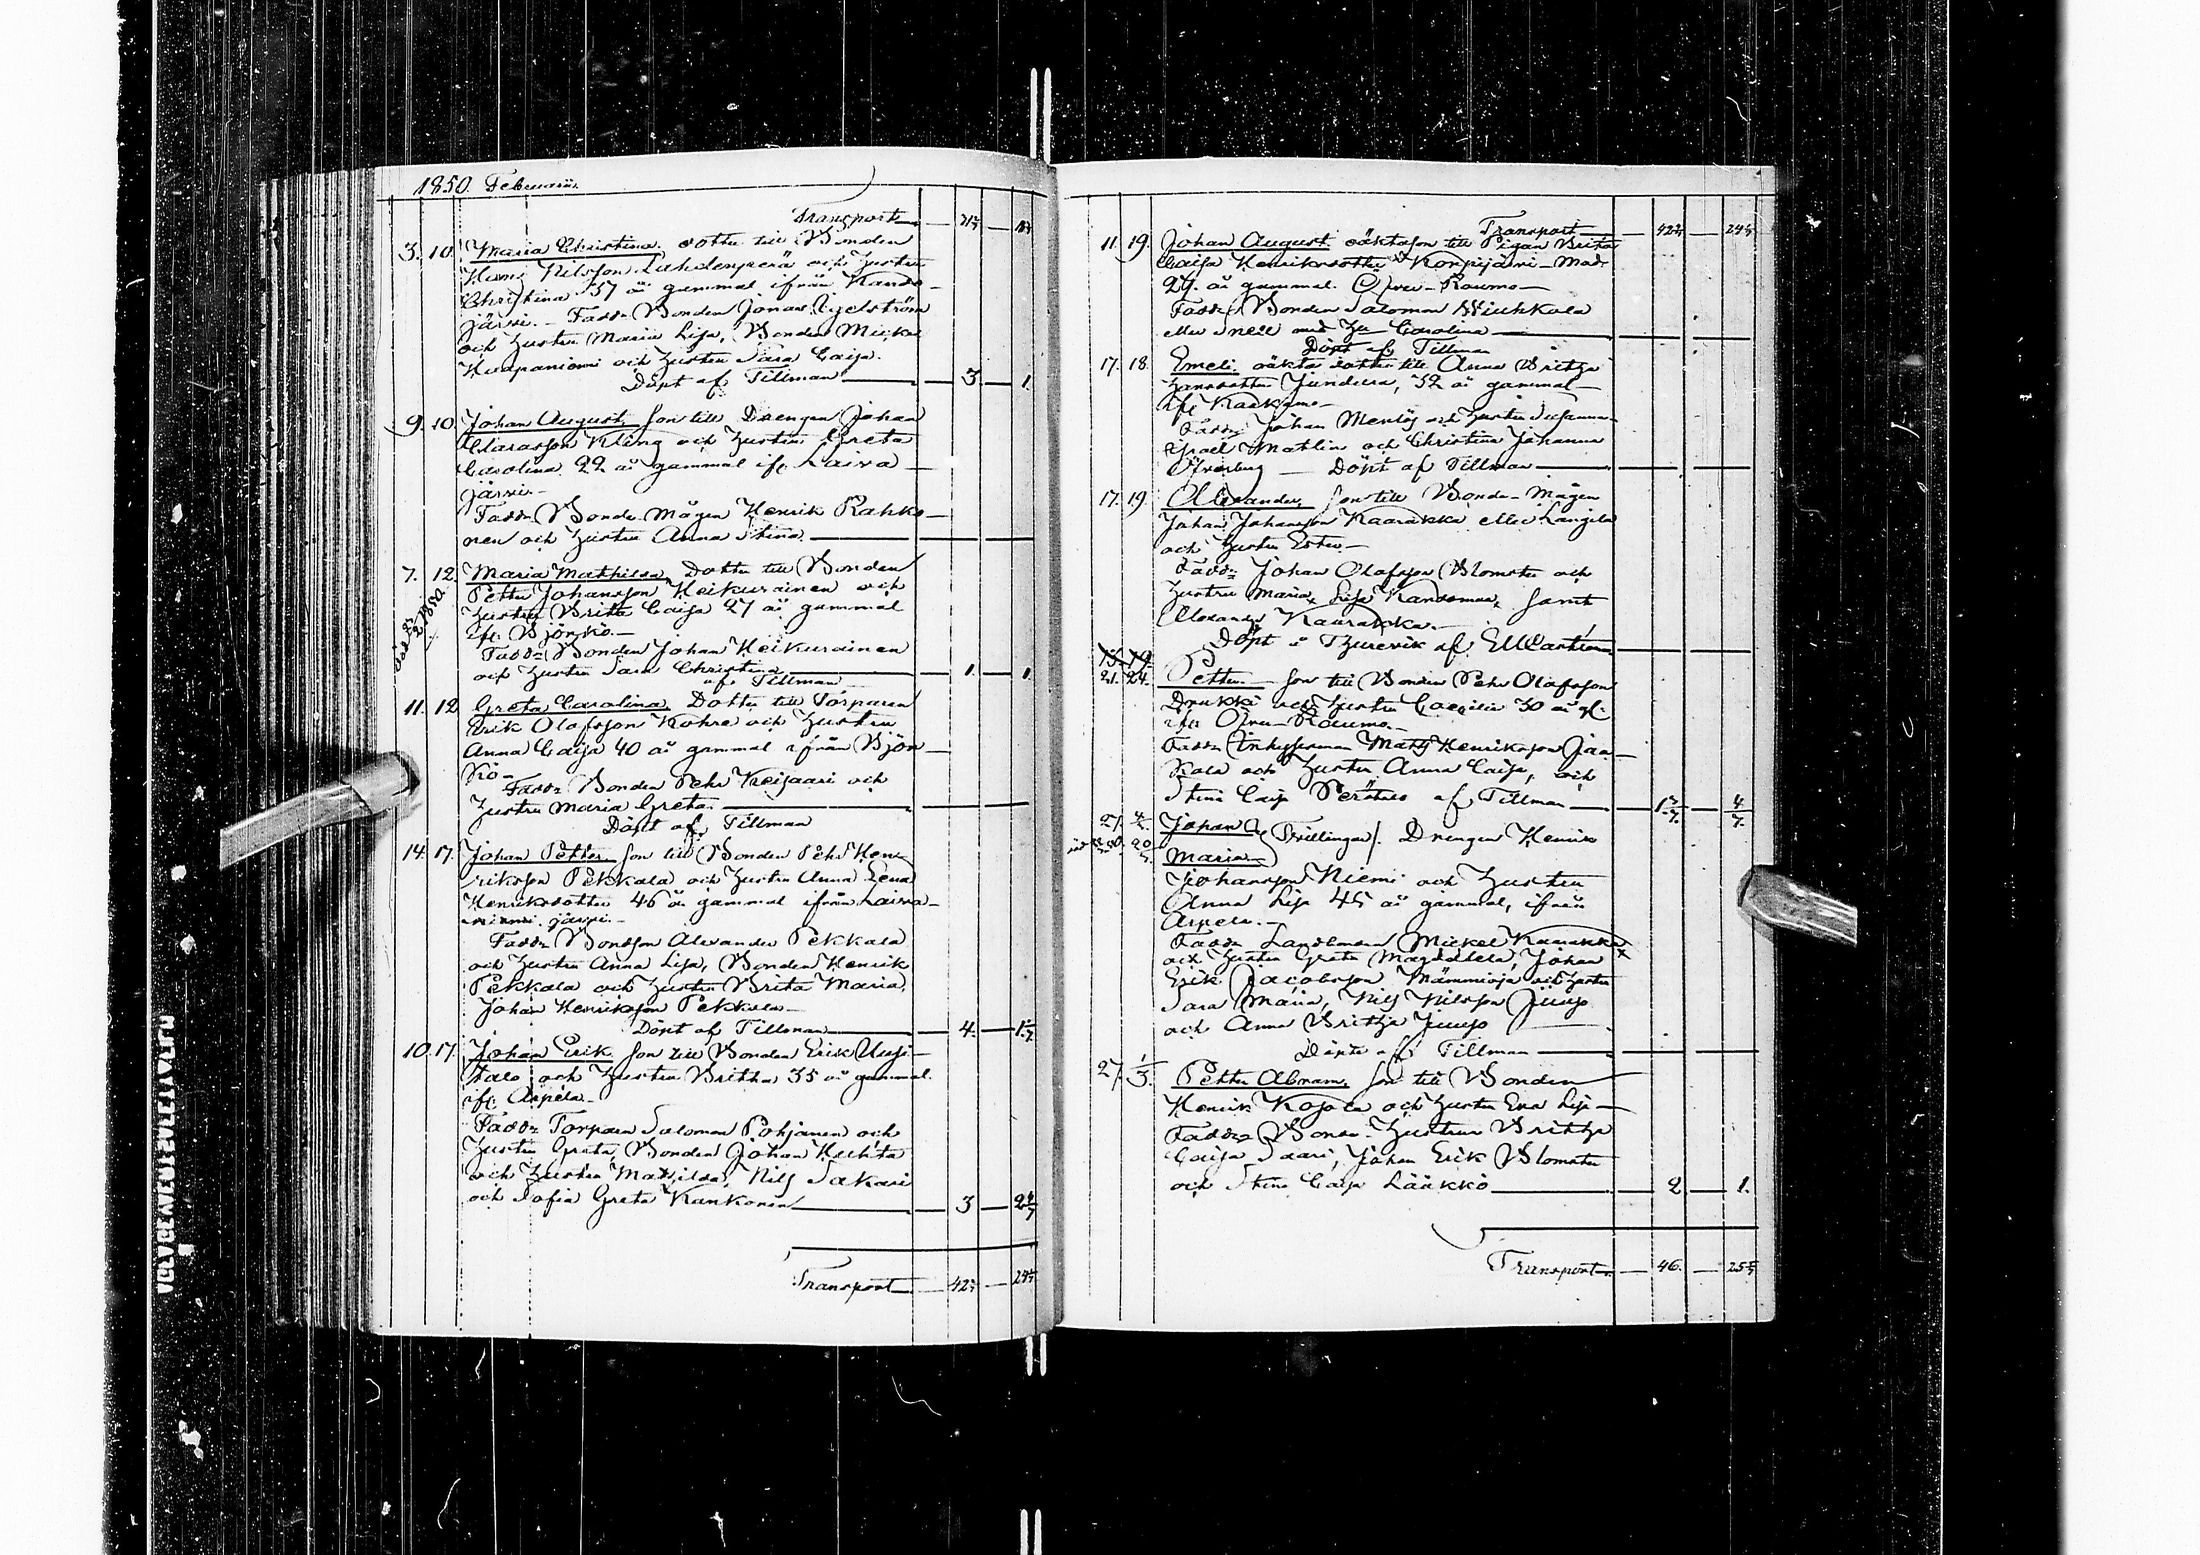 1850. Februarii
Transport
3. 10. Maria Christina. dotter till Bonden
Nilsson Lahdenperä och hustru
Christina 37 år gammal ifrån Kando-
järvi. - Fadd: Bonden Jonas
och hustru Maria Lisa, Bonden Mickel
och hustru Sara Caisa.
Döpt af Tillman 3 1.
9. 10. Johan August. son till Drengen Johan
Clarasson Kling och hustru Greta
Carolina 22 år gammal ifr. Laiva-
järvi-
Fadd: Bonde Mågen Henrik Rahko-
nen och hustru Anna Stina
7. 12. Maria Mathilda. Dotter till Bonden
Petter Johansson Heikurainen och
hustru Brita Caisa 27 år gammal
ifr. Björkö.-
Fadd: Bonden Johan Heikurainen
och hustru Sara Christina 1. 1
af Tillman
11. 12 Greta Carolina. Dotter till Torparen
Erik Olofsson Kohre och hustru
Anna Caisa 40 år gammal ifrån Björ-
kö-
Fadd: Bonden Pehr Keisaari och
hustru Maria Greta.
Döpt af Tillman
14. 17. Johan Petter son till Bonden Pehr Hen-
riksson Pekkala och hustru Anna Lena
Henriksdotter 46 år gammal ifrån Laiva-
järvi.-
Fadd: Bondson Alexander Pekkala
och hustru Anna Lisa, Bonden Henrik
Pekkala och hustru Brita Maria,
Johan Henriksson Pekkala-
Döpt af Tillman 4.
10. 17. Johan Erik. son till Bonden Erik Uusi-
talo och hustru Britha 35 år gammal.
ifr. Arpela-
Fadd: Torparen Salomon Pohjanen och
hustru Greta, Bonden Johan Huhta
och hustru Mathilda, Nils Sakari
och Sofia Greta Kunkonen 3
Transport
Transport
11. 19. Johan August. oäkta son till Pigan Brita
Caisa Henriksdotter Korpijärvi-
29. år gammal. Öfver-Raumo-
Fadd: Bonden Salomon
eller Snell med hu Carolina
Döpt af Tillman
17. 18. Emeli. oäkta dotter till Anna Britha
Hansdotter Jundura, 32 år gammal-
ifr. Kaakamo-
Fadd: Johan Menlös och hustru Susanna
Israel Mathlin och Christina Johanna
Öfverberg - Döpt af Tillman
17. 19. Alexander, son till Bonde-Mågen
Johan Johansson Kaarakka eller Langila
och hustru Ester-
Fadd: Johan Olofsson Blomster och
hustru Maria, Lisa Kandomaa, samt
Alexander Kaarakka.-
Döpt i Tjurevik af E. M. Cartian
15. 19.
21. 24. Petter son till Bonden Pehr Olofsson
Drukki och hustru Caecilia 30 år gl.
ifr. Öfver-Raumo-
Fadd: Inhysesman Matts Henriksson Jaa-
kola och hustru Anna Caisa, och
Stina Caisa Perätalo af Tillman
27. Johan
Maria Tvillingar. Drengen Henrik
Johansson Niemi och hustru
Anna Lisa 45 år gammal, ifrån
Arpela.-
Fadd: Landbonden Mickel Kaarakka
och hustru Greta Magdalena, Johan
Erik Jacobsson Mämmioja och hustru
Sara Maria, Nils Nilsson Juujo
och Anna Britha Juujo
Döpte af Tillman
27. 1/3. Petter Abram. son till Bonden
Henrik Kojola och hustru Eva Lisa-
Fadd: Bonde-hustrun Britha
Caisa Saari, Johan Erik Blomster
och Stina Caisa Läükkö 2 1.
Transport 46.